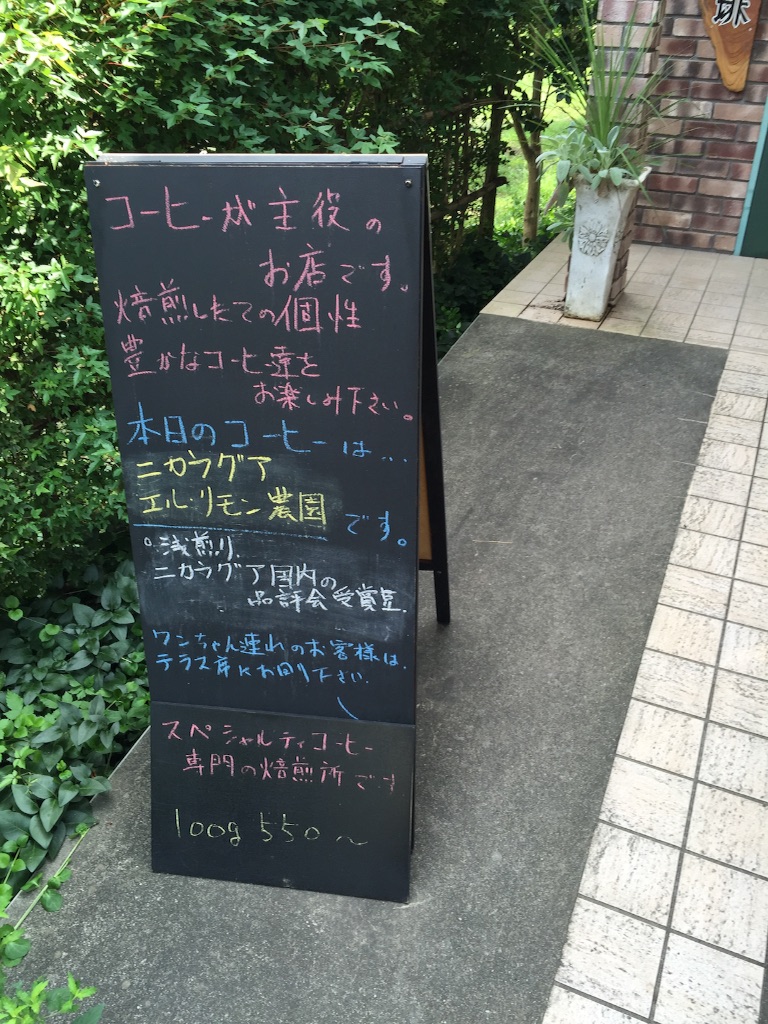 琲
コーヒーが主役の
お店です。
焙煎したての個性
豊かなコーヒー達を
お楽しみ下さい。
本日のコーヒーは…
ニカラグア
エル・リモン農園です。
。浅煎り.
ニカラグア国内の
品評会受賞豆.
ワンちゃん連れのお客様は.
テラス席にお回り下さい.
スペシャルティコーヒー
専門の焙煎所です
100g 550〜